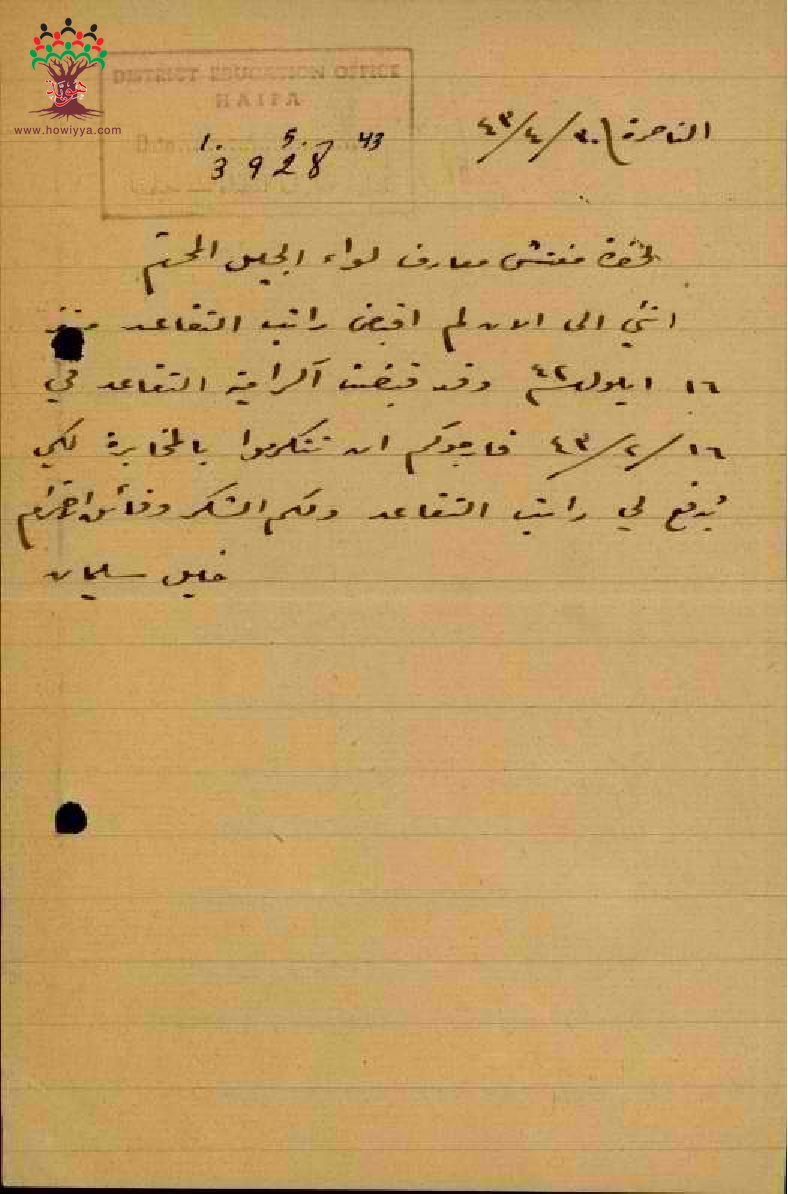 هوية
www.howiyya.com
DISTRICT EDUCATION OFFICE
HAIFA
1. 5. 43
3928
الناصرة ٣٠/٤/٤٣
لحضرة مفتش معارف لواء الجليل المحترم
انني الى الان لم اقبض راتب التقاعد منذ
١٦ ايلول ٤٢ وقد قبضت اكرامية التقاعد في
١٦/٢/٤٣ فارجوكم ان تتكرموا بالمخابرة لكي
يُدفع لي راتب التقاعد ولكم الشكر وفائق الاحترام
خليل سليمان